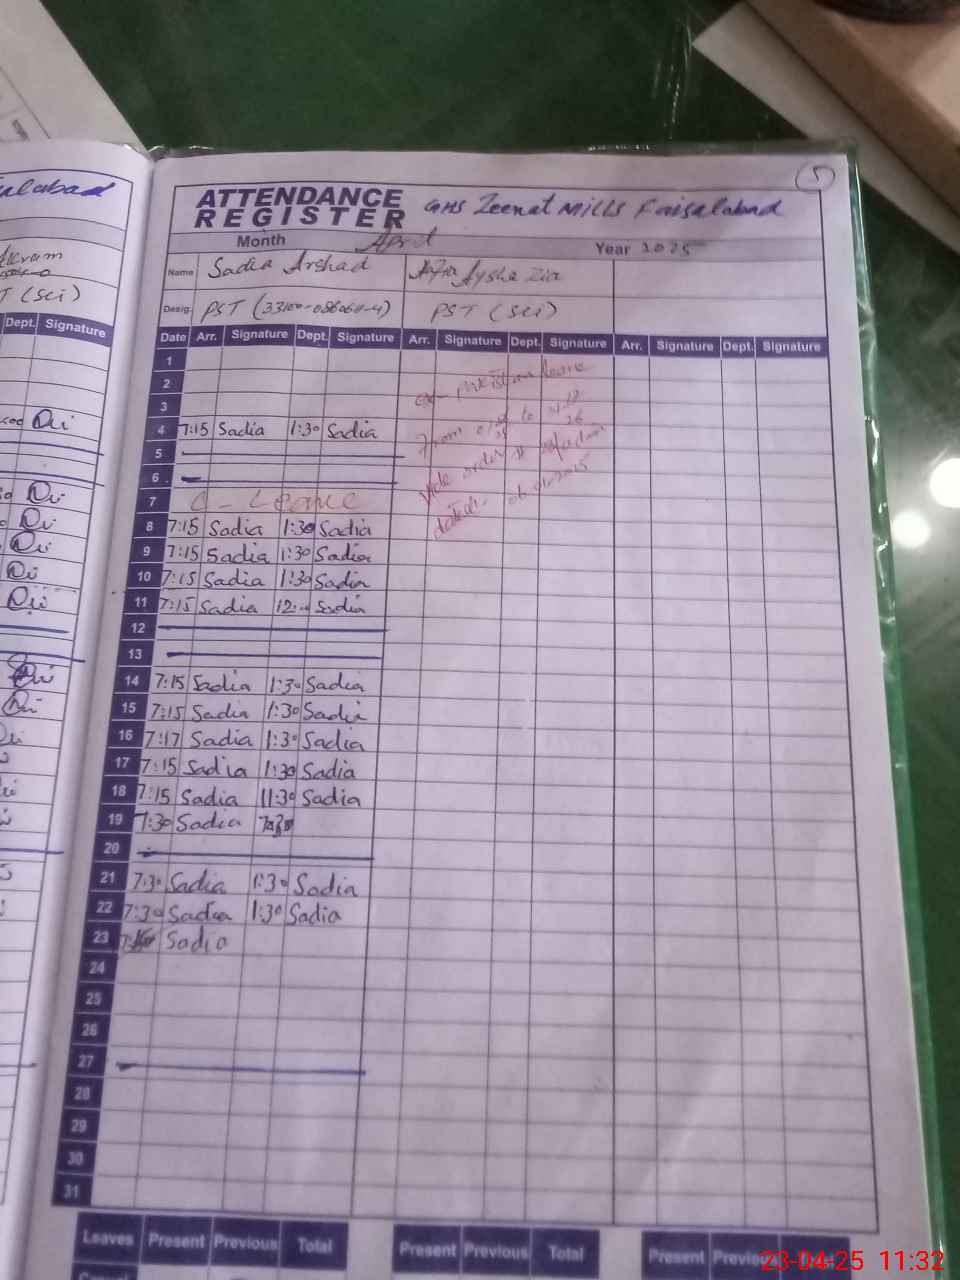 5
ATTENDANCE REGISTER GHS Zeenat Mills Faisalabad
Month April Year 2025
Name Sadia Arshad Aysha Zia
Desig. PST PST (sci)
Date Arr. Signature Dept. Signature Arr. Signature Dept. Signature Arr. Signature Dept. Signature
1
2
3
4 7:15 Sadia 1:30 Sadia
5
6
7 C-Leave
8 7:15 Sadia 1:30 Sadia
9 7:15 Sadia 1:30 Sadia
10 7:15 Sadia 1:30 Sadia
11 7:15 Sadia 12: Sadia
12
13
14 7:15 Sadia 1:30 Sadia
15 7:15 Sadia 1:30 Sadia
16 7:17 Sadia 1:30 Sadia
17 7:15 Sadia 1:30 Sadia
18 7:15 Sadia 11:30 Sadia
19 7:30 Sadia
20
21 7:30 Sadia 1:30 Sadia
22 7:30 Sadia 1:30 Sadia
23 Sadia
24
25
26
27
28
29
30
31
Leaves Present Previous Total Present Previous Total Present
ex-Pakistan leave
From to
vide order
dated
Akram
(sci)
Dept. Signature
23-04-25 11:32